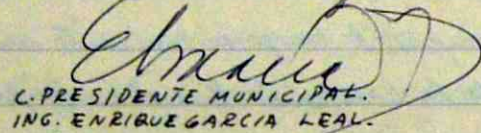 C. PRESIDENTE MUNICIPAL.
ING. ENRIQUE GARCIA LEAL.